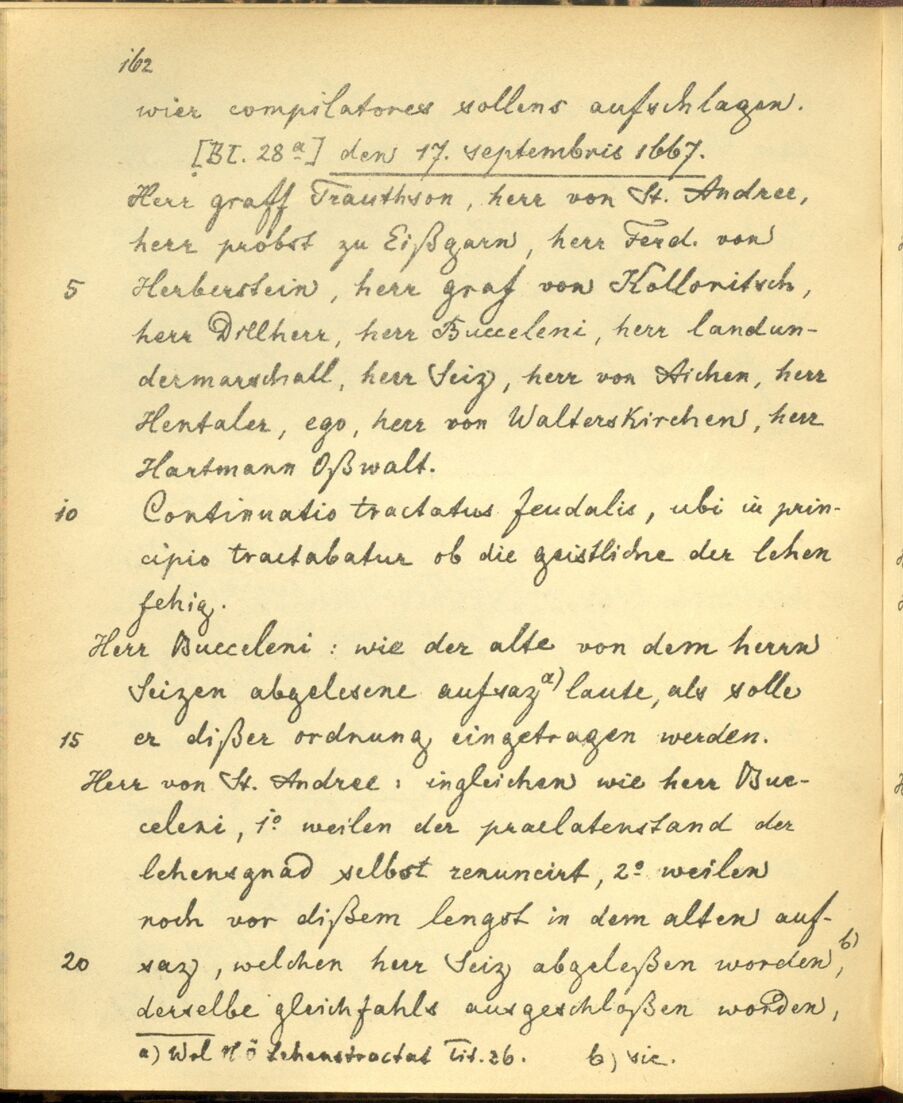 162
wier compilatores sollens aufschlagen.
[Bl. 28a] den 17. septembris 1667.
Herr graff Trauthson, herr von St. Andree,
herr probst zu Eißgarn, herr Ferd. von
5 Herberstein, herr graf von Kollonitsch,
herr Dillherr, herr Bucceleni, herr landun-
dermarschall, herr Seiz, herr von Aichen, herr
Hentaler, ego, herr von Walterskirchen, herr
Hartmann Oßwalt.
10 Continuatio tractatus feudalis, ubi in prin-
cipio tractabatur ob die geistliche der lehen
fehig.
Herr Bucceleni: wie der alte von dem herrn
Seizen abgelesene aufsaz a) laute, als solle
15 er dißer ordnung eingetragen werden.
Herr von St. Andree: ingleichen wie herr Buc-
celeni, 1o weilen der praelatenstand der
lehensgnad selbst renuncirt, 2o weilen
noch vor dißem lengst in dem alten auf-
20 saz, welchen herr Seiz abgeleßen worden, b)
derselbe gleichfahls ausgeschloßen worden,
a) Lehenstractat Tit. 26. b) sic.